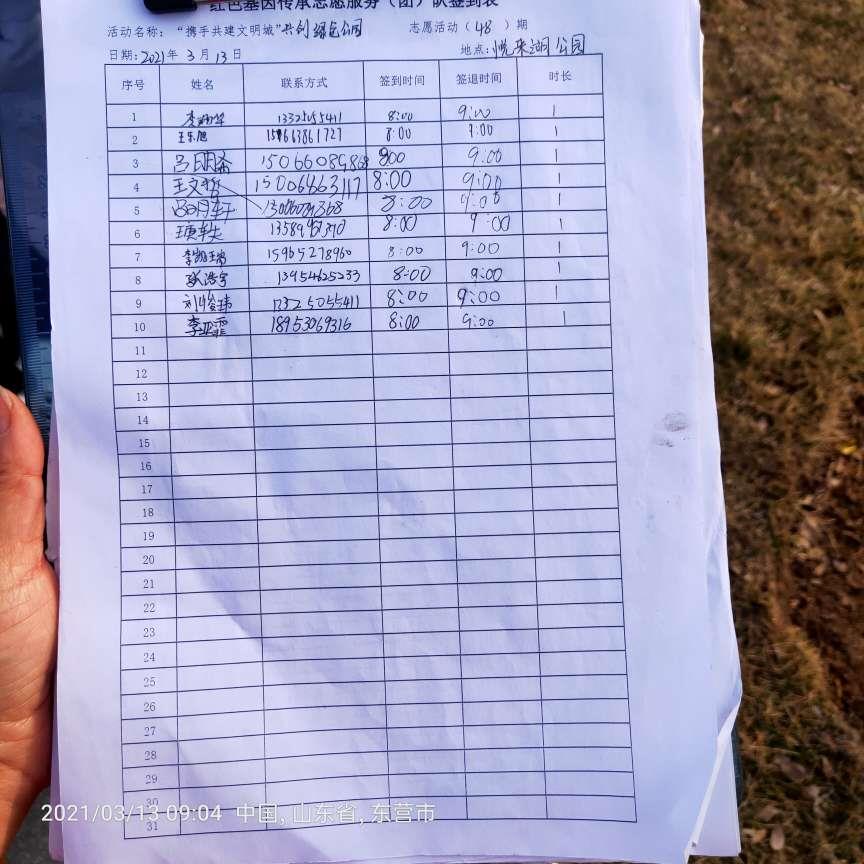 红色基因传承志愿服务（团）队签到表
活动名称：“携手共建文明城”共创绿色公园 志愿活动（48）期
日期：2021年3月13日 地点：悦来湖公园
序号 姓名 联系方式 签到时间 签退时间 时长
1 8:00 9:00 1
2 王乐旭 151663861727 8:00 9:00 1
3 吕明 8:00 9:00 1
4 王文哲 15006663117 8:00 9:00 1
5 8:00 9:00 1
6 8:00 9:00 1
7 李 15965278960 8:00 9:00 1
8 张浩宇 13954625233 8:00 9:00 1
9 刘俊玮 13325055411 8:00 9:00 1
10 李亚霏 18953069316 8:00 9:00 1
11
12
13
14
15
16
17
18
19
20
21
22
23
24
25
26
27
28
29
30
31
2021/03/13 09:04 中国, 山东省, 东营市